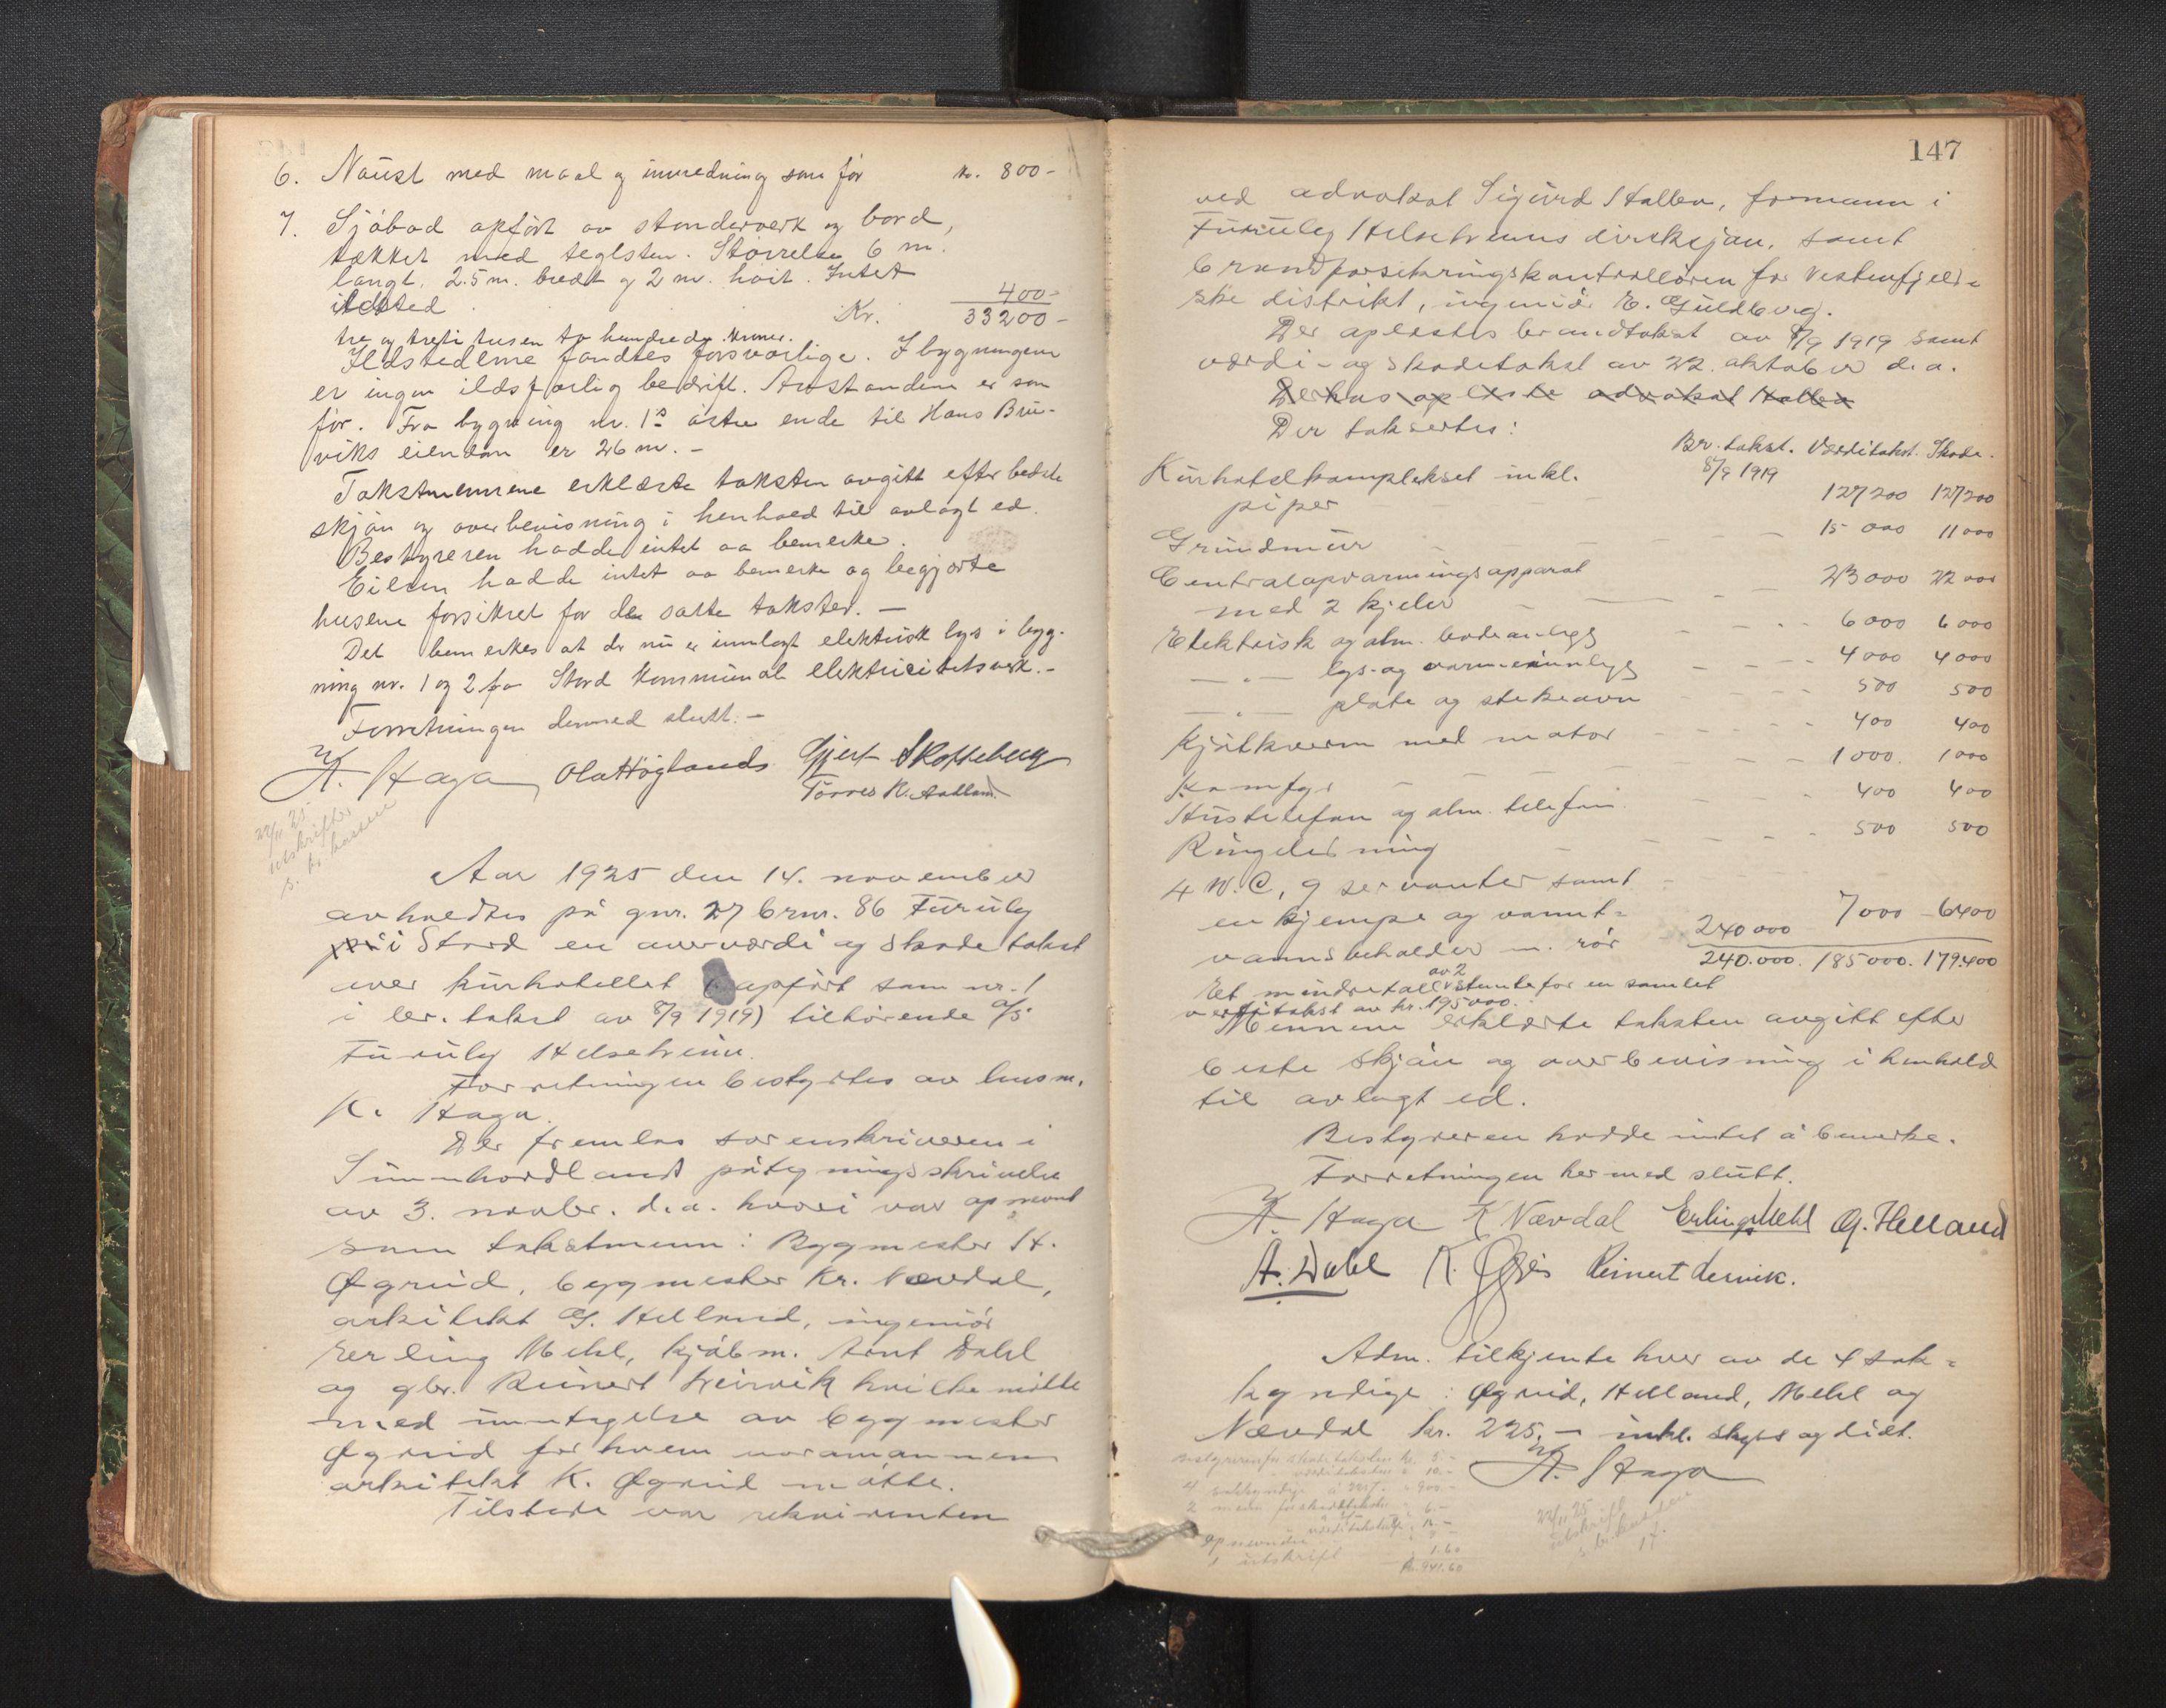 6. Naust med maal og innredning som før kr. 800-
7. Sjøbod opført av stenderverk og bord,
tækket med teglsten. Størrelse 6 m.
langt, 2.5 m. bredt og 2 m. høit. Intet
ildsted 400-
Kr. 33200-
tre og treti tusen to hundrede kroner.
Ildstederne fandtes forsvarlige. I bygningene
er ingen ildsfarlig bedrift. Avstandene er som
før. Fra bygning nr. 1s østre ende til Hans Bru-
viks eiendom er 26 m. -
Takstmennene erklærte taksten avgitt efter bedste
skjøn og overbevisning i henhold til avlagt ed.
Bestyreren hadde intet aa bemerke.
Eieren hadde intet aa bemerke og begjærte
husene forsikret for de satte takster. -
Det bemerkes at der nu er innlagt elektrisk lys i byg-
ning nr. 1 og 2 fra Stord kommunale elektricitetsverk. -
Forretningen dermed slutt. -
K. Haga Ola Høglands Gjert Skotteberg
Tørres K. Aadland
22/11 25
utskrifter
s. br. kassen
Aar 1925 den 14. november
avholdtes på gnr. 27 brnr. 86 Furuly
på i Stord en over værdi og skade takst
over kurhotellet opført som nr. 1
i br. takst av 8/9 1919) tilhørende A/S
Furuly Helseheim.
Forretningen bestyrtes av lensm.
K. Haga.
Der fremlas sorenskriveren i
Sunnhordlands påtegningsskrivelse
av 3. novbr. d.a. hvori var opnevnt
som takstmenn: Bygmester H.
Øgrud, bygmester Kr. Nævdal,
arkitekt G. Helland, ingeniør
Erling Mehl, kjøbm. Arnt Dahl
og gbr. Reinert Leirvik hvilke møtte
med undtagelse av bygmester
Øgrud for hvem varamannen
arkitekt K. Øgrud møtte.
Tilstede var rekvirenten
147
ved advokat Sigurd Hallen, formann i
Furuly Helseheims direksjon, samt
brandforsikringskontrolløren for Vestenfjeld-
ske distrikt, ingeniør E. Guldberg.
Der oplestes brandtakst av 8/9 1919 samt
værdi- og skadetakst av 22. oktober d.a.
Derhos oplæste advokat Hallen
Der taksertes:
Br. takst. Værditakst. Skade.
8/9 1919
Kurhotelkomplekset inkl.
piper 127200 127200
Grundmur 15 000 11000
Centralopvarmingsapparat
med 2 kjeler 23000 22000
Elektrisk og alm. badeanlegg 6000 6000
—"— lys- og varmeanlegg 4000 4000
—"— plate og stekeovn 500 500
Kjøtkvern med motor 400 400
Komfyr 1000. 1000
Hustelefon og alm. telefon 400 400
Ringeledning 500 500
4 W.C, 9 servanter samt
en kjempe og varmt-
vannsbeholder m. rør 240000 7000 - 6400
240.000. 185000. 179.400
Et mindretall av 2 stemte for en samlet
verditakst av kr. 195000.
Mennene erklærte taksten avgitt efter
beste skjøn og overbevisning i henhold
til avlagt ed.
Bestyreren hadde intet å bemerke.
Forretningen hermed slutt.
K. Haga K Nævdal Erling Mehl G. Helland
A. Dahl K. Øgrud Reinert Lervik.
Adm. tilkjente hver av de 4 sak-
kyndige: Øgrud, Helland, Mehl og
Nævdal kr. 225,- inkl. skyss og diet.
K. Haga
Bestyreren for skadetaksten kr. 5.-
værditaksten 10.-
4 sakkyndige à 225.- 900.-
2 menn for skadetakst 6.-
værditakst 12.-
Opnevnelse
1 utskrift 1.60
Kr. 941.60
22/11 25
utskrift
s. br. kassen
17.